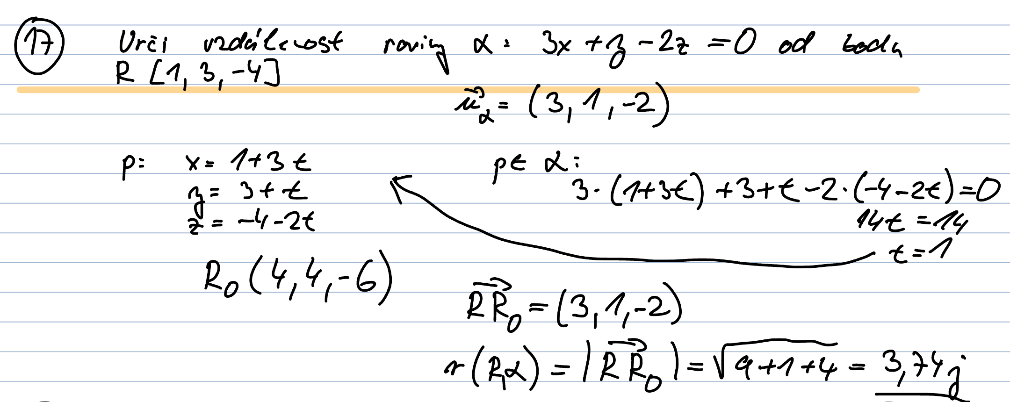 17 Urči vzdálenost roviny α: 3x + y - 2z = 0 od bodu
R [1, 3, -4]
n⃗α = (3, 1, -2)
p: x = 1+3t p∈ α:
y = 3+t 3·(1+3t)+3+t-2·(-4-2t)=0
z = -4-2t 14t = 14
t = 1
R₀ (4, 4, -6)
RR₀ = (3, 1, -2)
v(R,α) = |RR₀| = √9+1+4 = 3,74 j